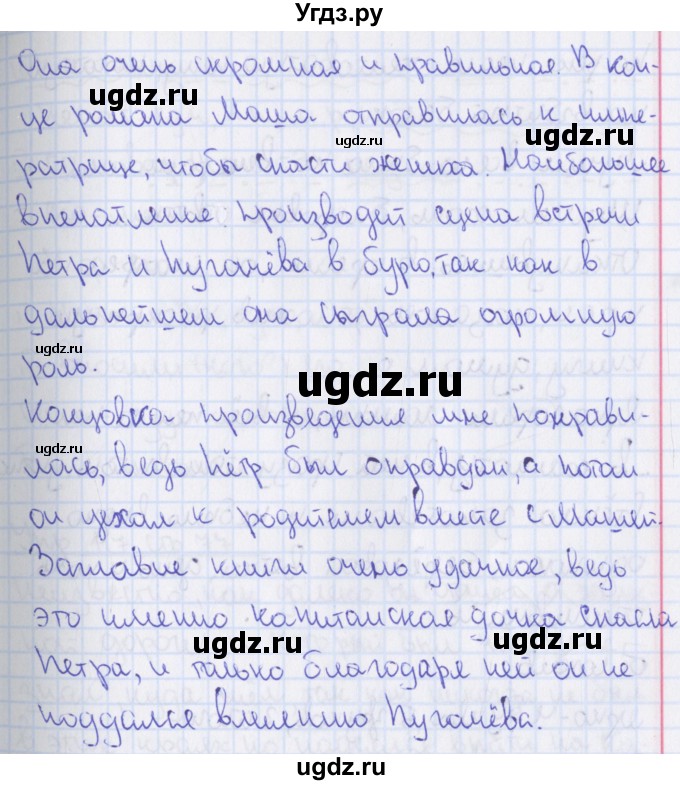 Угдз.ру
Она очень скромная и правильная. В кон-
ugdz.ru
це романа Маша отправилась к импе-
ugdz.ru
ugdz.ru
ратрице, чтобы спасти жениха. Наибольшее
впечатление производет сцена встречи
ugdz.ru
ugdz.ru
Петра и Пугачёва в бурю, так как в
дальнейшем она сыграла огромную
ugdz.ru
роль.
ugdz.ru
Концовка произведения мне понрави-
ugdz.ru
лась, ведь Пётр был оправдан, а потом
он уехал к родителем вместе с Машей.
ugdz.ru
Заглавие книги очень удачное, ведь
это именно капитанская дочка спасла
ugdz.ru
ugdz.ru
Петра, и только благодаря ней он не
ugdz.ru
поддался влиянию Пугачёва.
ugdz.ru